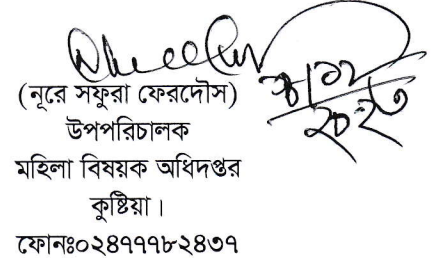 (নূরে সফুরা ফেরদৌস)
উপপরিচালক
মহিলা বিষয়ক অধিদপ্তর
কুষ্টিয়া।
ফোনঃ০২৪৭৭৭৮২৪৩৭